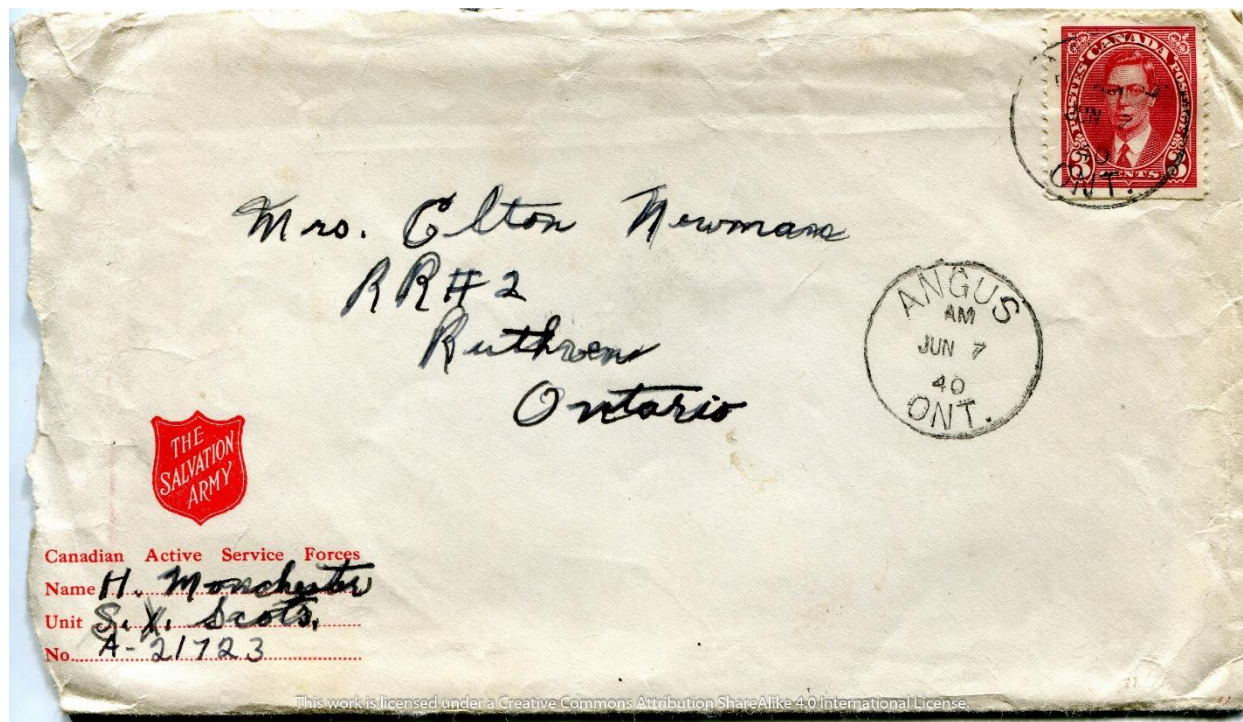 POSTES CANADA POSTAGE
3 CENTS 3
JUN 7
40
ONT.
Mrs. Elton Newman
RR#2
Ruthven
Ontario
ANGUS
AM
JUN 7
40
ONT.
THE
SALVATION
ARMY
Canadian Active Service Forces
Name H. Monchester
Unit S. X. Scots.
No. A-21723
This work is licensed under a Creative Commons Attribution ShareAlike 4.0 International License.